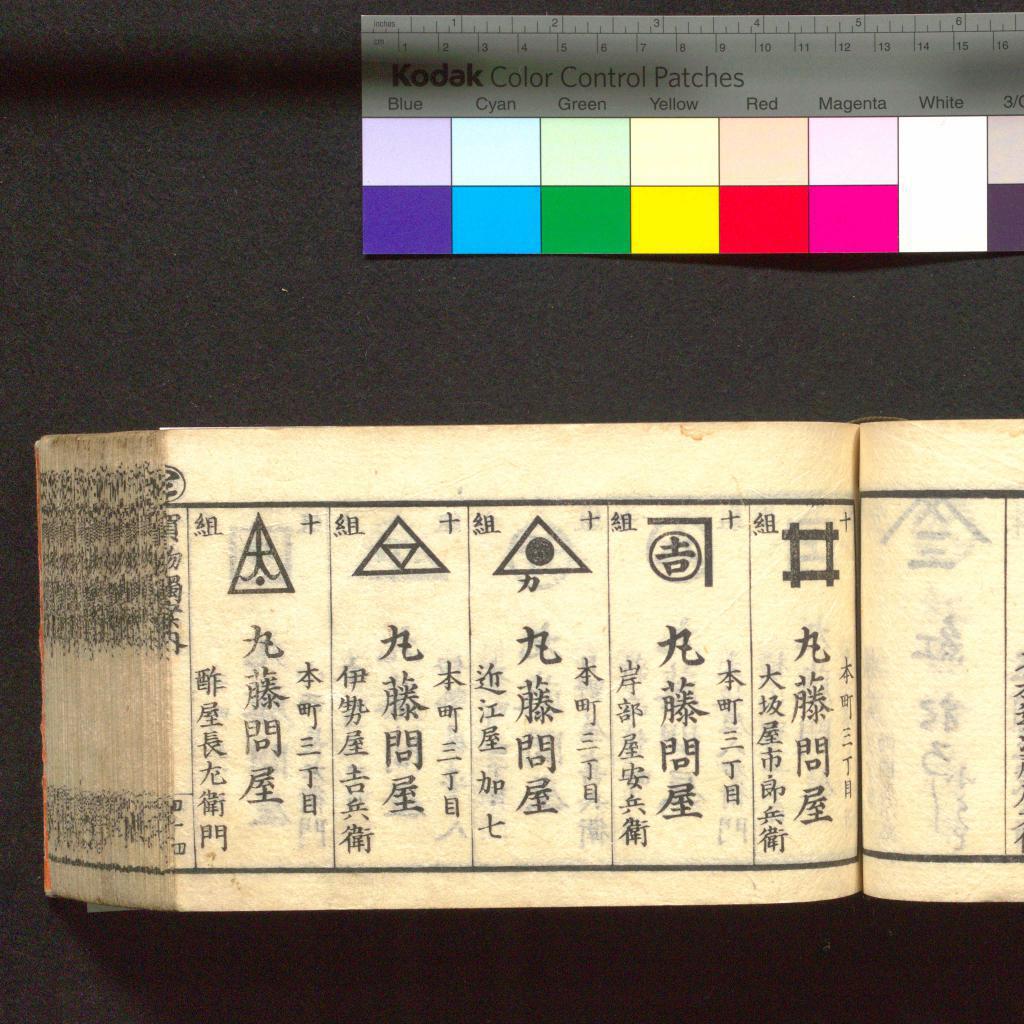 inches 1 2 3 4 5 6
cm 1 2 3 4 5 6 7 8 9 10 11 12 13 14 15 16
Kodak Color Control Patches
Blue Cyan Green Yellow Red Magenta White
十組
丸藤問屋
本町三丁目
大坂屋市郎兵衛
十組
吉
丸藤問屋
本町三丁目
岸部屋安兵衛
十組
カ
丸藤問屋
本町三丁目
近江屋加七
十組
丸藤問屋
本町三丁目
伊勢屋吉兵衛
十組
丸藤問屋
本町三丁目
酢屋長左衛門
四十四